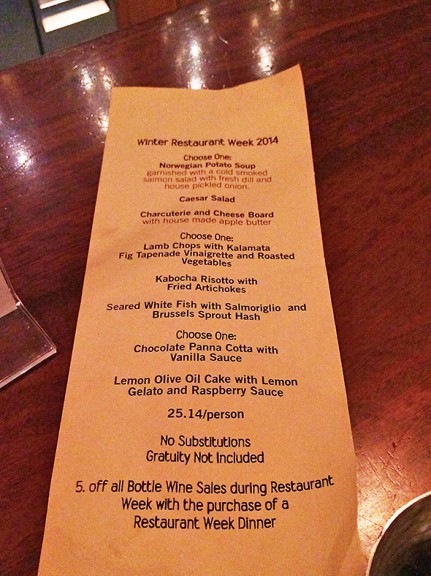 Winter Restaurant Week 2014
Choose One:
Norwegian Potato Soup
garnished with a cold smoked
salmon salad with fresh dill and
house pickled onion.
Caesar Salad
Charcuterie and Cheese Board
with house made apple butter
Choose One:
Lamb Chops with Kalamata
Fig Tapenade Vinaigrette and Roasted
Vegetables
Kabocha Risotto with
Fried Artichokes
Seared White Fish with Salmoriglio and
Brussels Sprout Hash
Choose One:
Chocolate Panna Cotta with
Vanilla Sauce
Lemon Olive Oil Cake with Lemon
Gelato and Raspberry Sauce
25.14/person
No Substitutions
Gratuity Not Included
5. off all Bottle Wine Sales during Restaurant
Week with the purchase of a
Restaurant Week Dinner